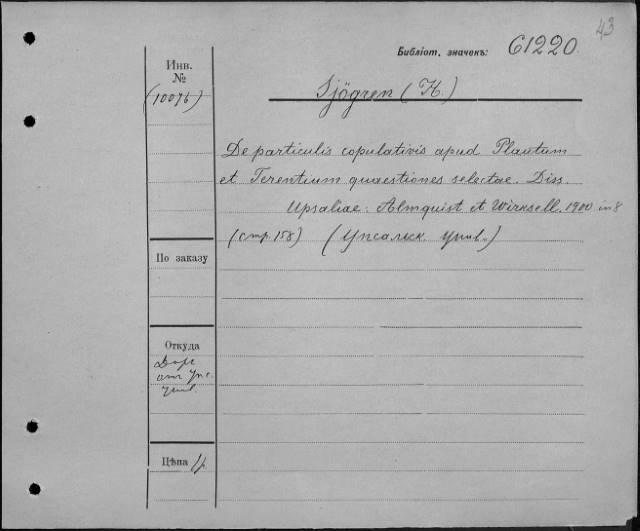 43
Библіот. значекъ: 61220
Инв.
№
(10076)
Sjögren (H.)
De particulis copulativis apud Plautum
et Terentium quaestiones selectae. Diss.
Upsaliae: Almquist et Wicksell. 1900 in 8
(стр. 158) (Упсальск. Унив.)
По заказу
Откуда
Даръ
от Упс.
Унив.
Цѣна